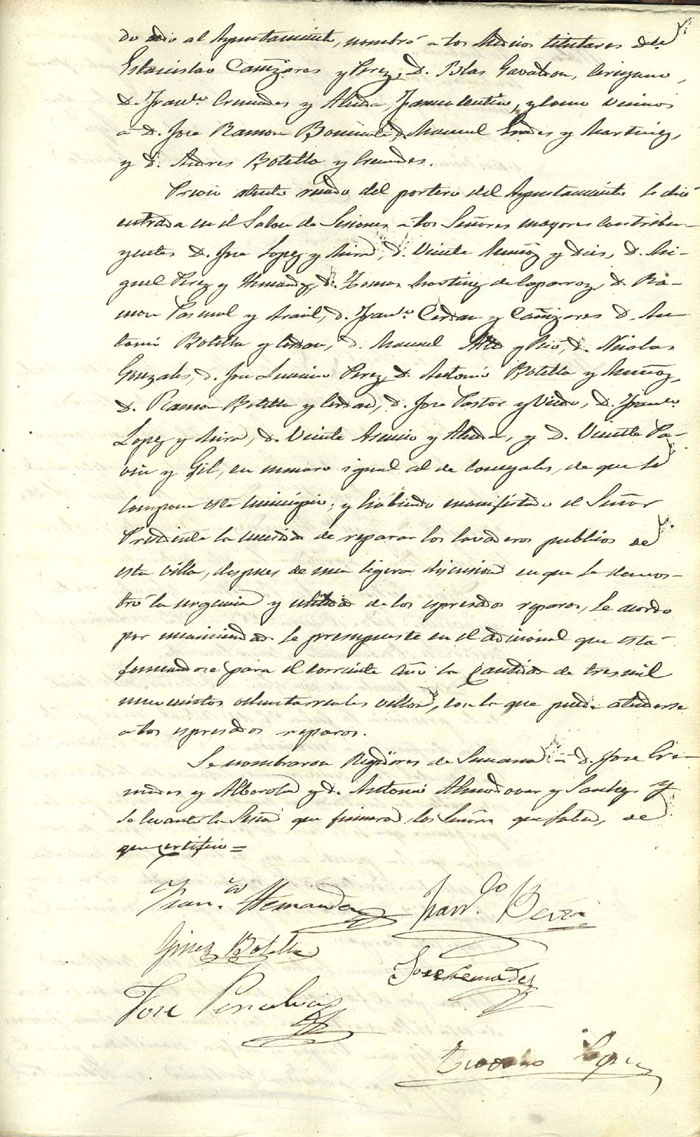 do esto al Ayuntamiento, nombró a los Medicos titulares D.
Estanislao Cañizares y Perez, D. Blas Gavaldon, Cirujano,
D. Franco. Cremades y Alenda, Farmaceutico, y como vecinos
a D. Jose Ramon Bonmati, D. Manuel y Martinez,
y D. Andres Botella y Cremades.
Previo atento recado del portero del Ayuntamiento se dió
entrada en el Salon de Sesiones a los Señores mayores contribu-
yentes D. Jose Lopez y Mira, D. Vicente Muñoz y D. Mi-
guel Perez y Hernandez, D. Tomas Martinez de D. Ra-
mon Pascual y D. Franco. Cerdan y Cañizares D. An-
tonio Botella y Cerdan, D. Manuel y D. Nicolas
Gonzales, D. Jose Perez, D. Antonio Botella y Muñoz,
D. Ramon Botella y Cerdan, D. Jose Pastor y D. Franco.
Lopez y Mira, D. Vicente Asencio y Alenda, y D. Vicente Pa-
 y Gil, en numero igual al de concejales, de que se
compone este municipio; y habiendo manifestado el Señor
Presidente la necesidad de reparar los lavaderos publicos de
esta villa, despues de una ligera discusion en que se demos-
tró la urgencia y utilidad de los espresados reparos, se acordó
por unanimidad se presupueste en el adicional que está
formandose para el corriente año la cantidad de tres mil
nuecientos ochenta reales vellon, con la que puede atenderse
a los espresados reparos.
Se nombraron Regidores de Semana a D. Jose Cre-
mades y Alberola y D. Antonio Almodovar y Sanchez. Y
se levantó la Sesion que firman los Señores que saben, de
que certifico =
Franco. Hernandez Franco. Beren
Gines Botella
Jose Cremades
Jose
Teodoro Lopez